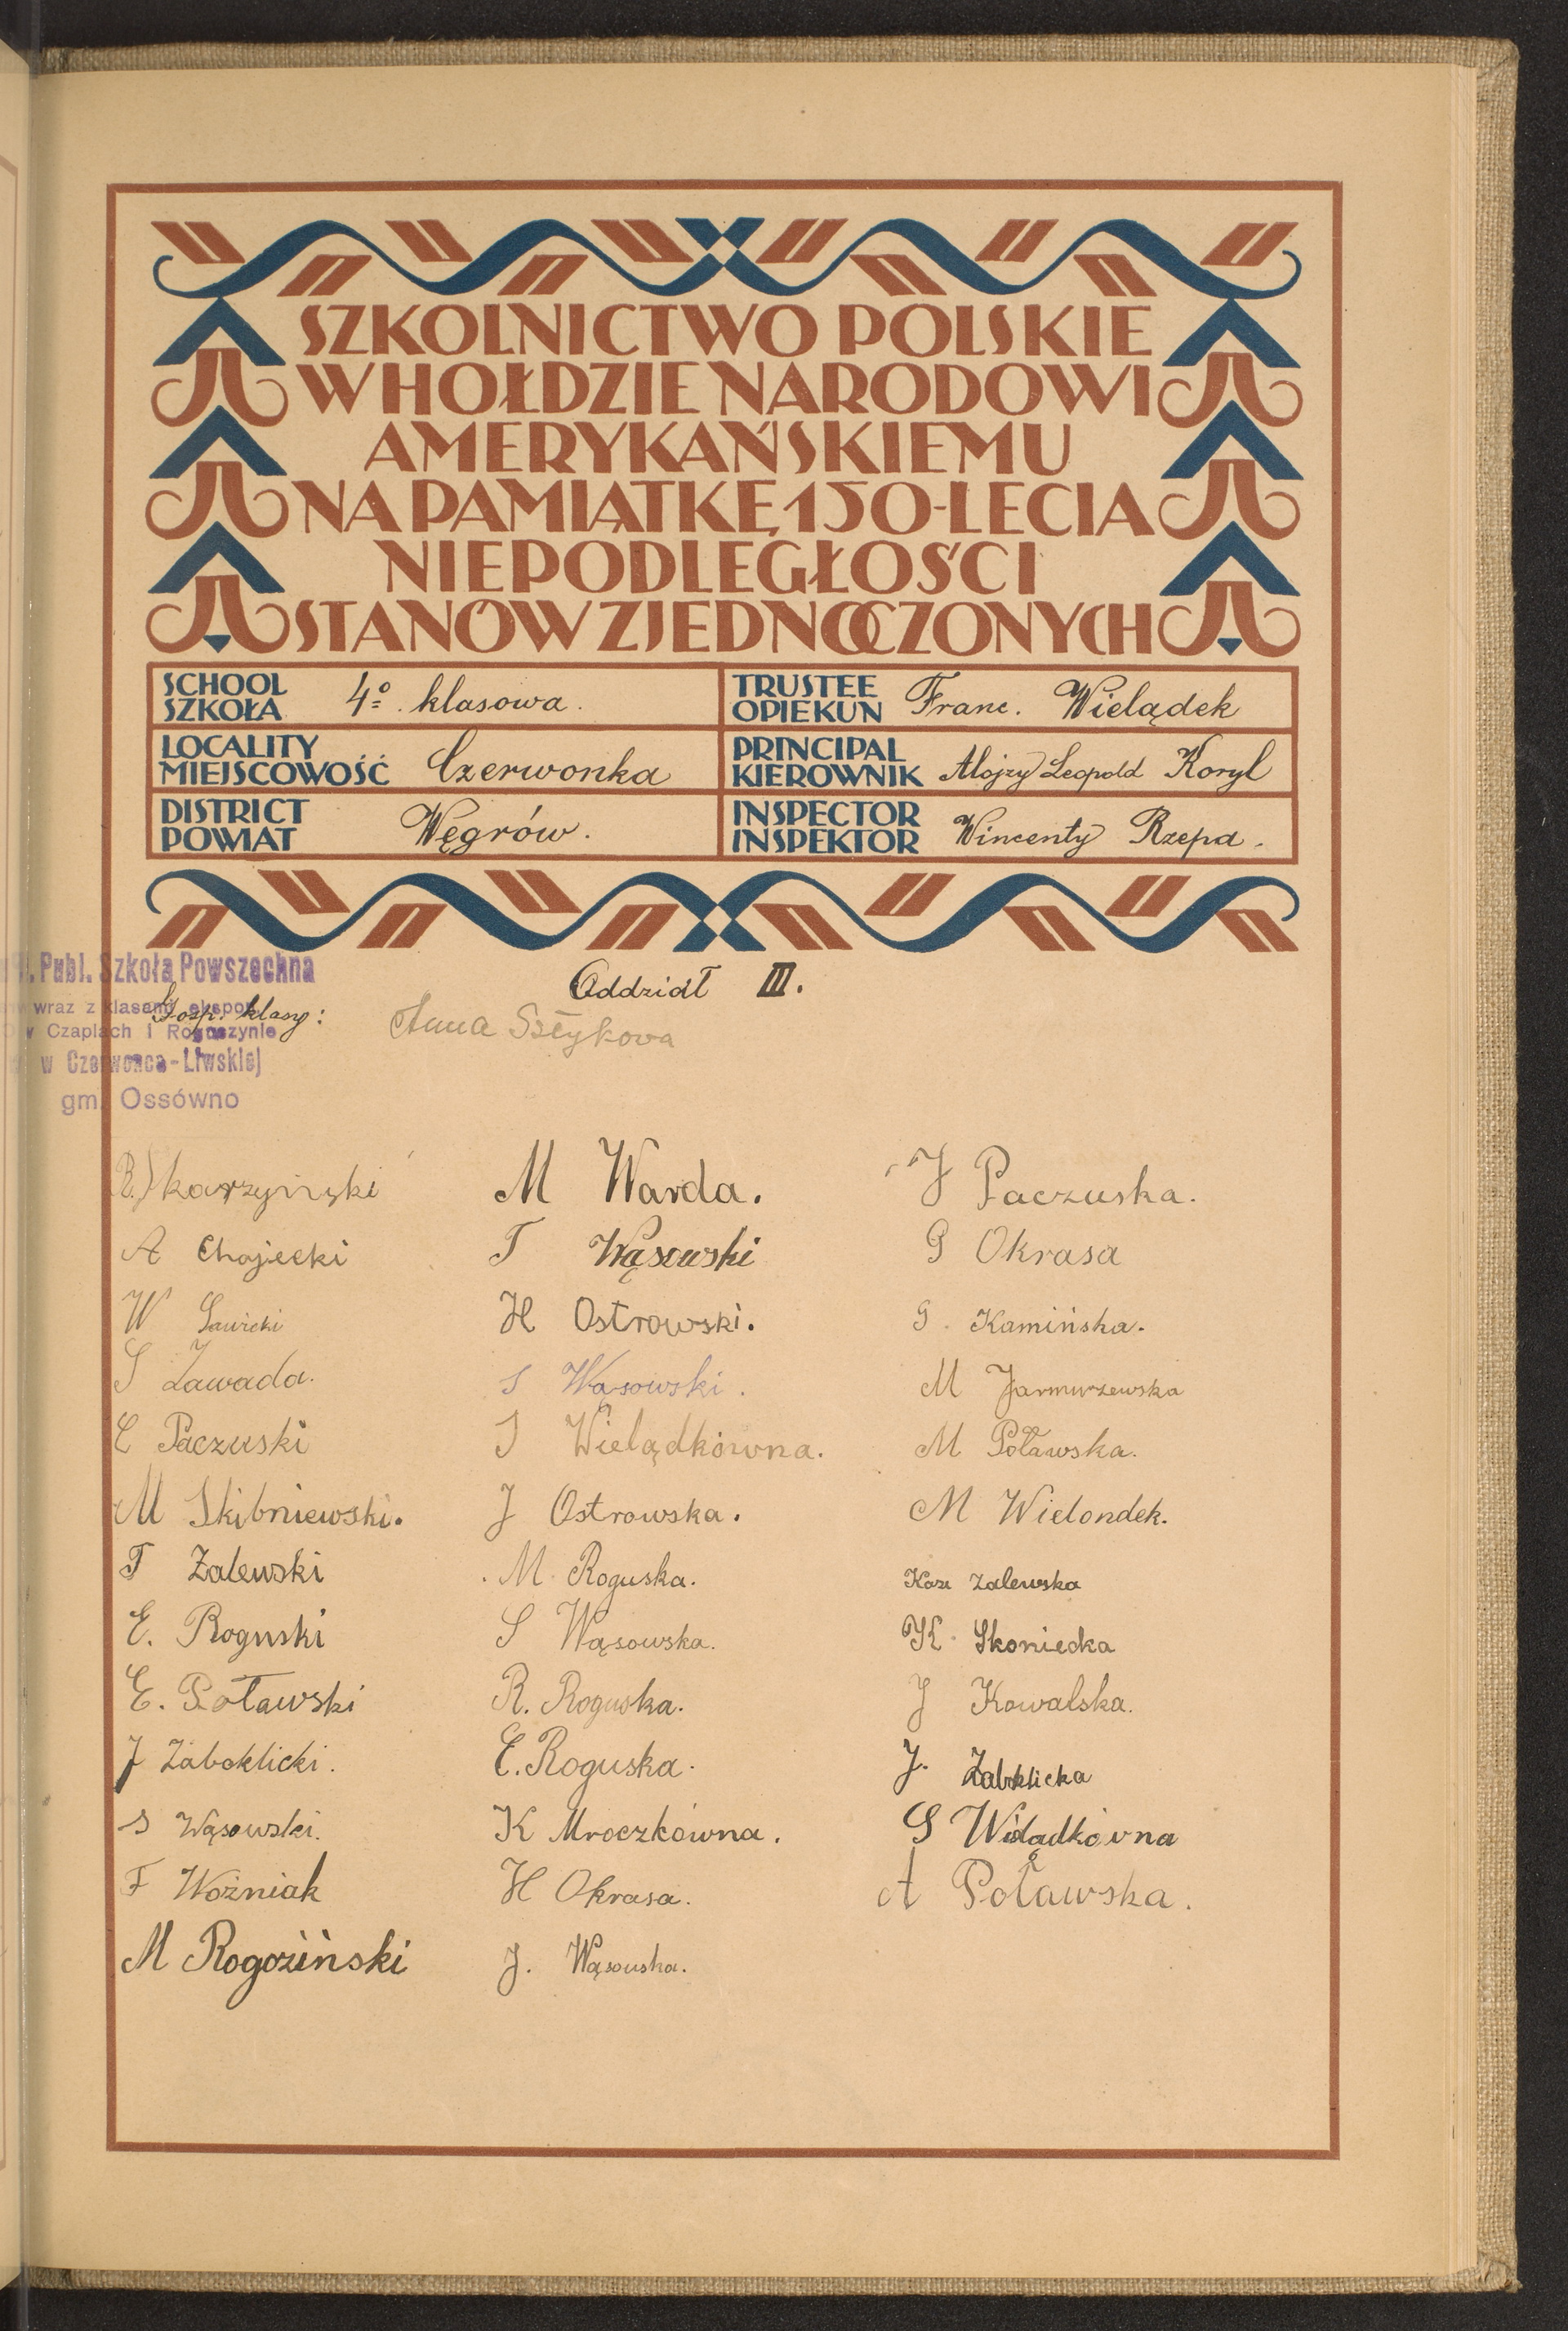 SZKOLNICTWO POLSKIE
W HOŁDZIE NARODOWI
AMERYKAŃSKIEMU
NA PAMIĄTKĘ 150-LECIA
NIEPODLEGŁOŚCI
STANÓW ZJEDNOCZONYCH
SCHOOL
SZKOŁA 4º klasowa.
TRUSTEE
OPIEKUN Franc. Wielądek
LOCALITY
MIEJSCOWOŚĆ Czerwonka
PRINCIPAL
KIEROWNIK Alojzy Leopold Koryl
DISTRICT
POWIAT Węgrów.
INSPECTOR
INSPEKTOR Wincenty Rzepa.
Publ. Szkoła Powszechna
wraz z klasami ekspon
w Czaplach i Roguszynie
w Czerwonce-Liwskiej
gm. Ossówno
Oddział III.
Gosp. klasy: Anna Szłykowa
R. Skarzyński
A Chojecki
W Sawicki
S Zawada.
C Paczuski
M Skibniewski.
T Zalewski
E. Roguski
E. Poławski
J Zaboklicki.
S Wąsowski.
F Woźniak
M Rogoziński
M Warda.
T Wąsowski
H Ostrowski.
S Wąsowski.
I Wielądkówna.
J Ostrowska.
M. Roguska.
S Wąsowska.
R. Roguska.
E. Roguska.
K Mroczkówna.
H Okrasa.
J. Wąsowska.
J Paczuska.
G Okrasa
G. Kamińska.
M Jarmurzewska
M Poławska.
M Wielondek.
Kazi Zalewska
K. Skoniecka
J Kowalska.
J. Zaboklicka
S Wielądkówna
A Poławska.